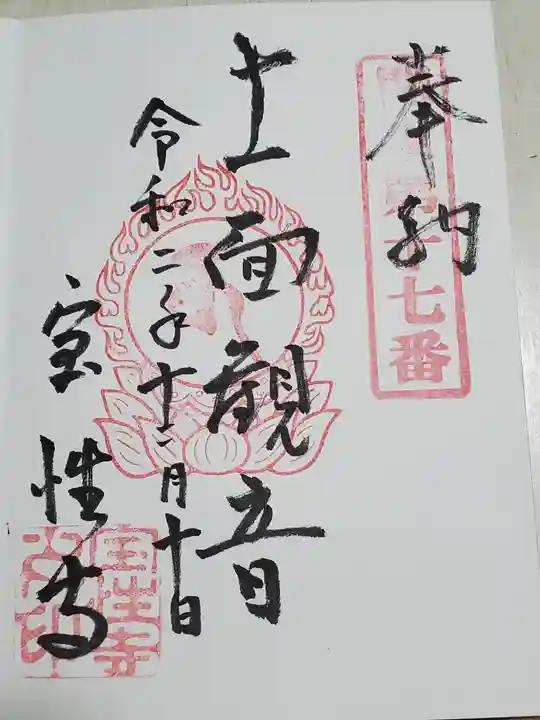 奉納
十七番
十一面観音
令和二年十二月十日
宝性寺